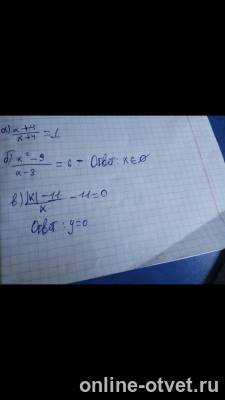 а) x+4/x+4 = 1
б) x²-9/x-3 = 6 - Ответ: x∈∅
в) |x|-11/x - 11=0
Ответ: y=0
online-otvet.ru